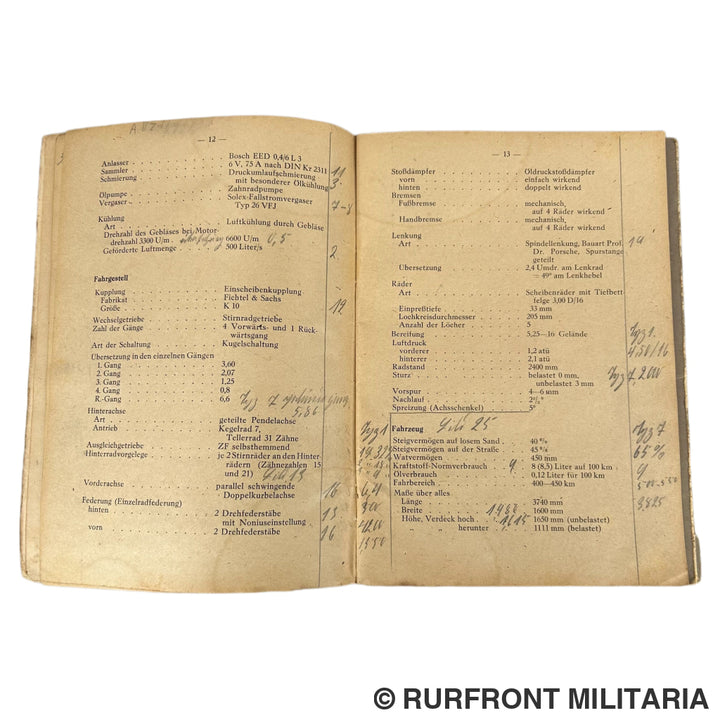 — 12 —
Anlasser . . . . . . . . Bosch EED 0,4/6 L 3
Sammler . . . . . . . . 6 V, 75 A nach DIN Kr 2311
Schmierung . . . . . . . . Druckumlaufschmierung
mit besonderer Ölkühlung
11
3
Ölpumpe . . . . . . . . Zahnradpumpe
Vergaser . . . . . . . . Solex-Fallstromvergaser
Typ 26 VFJ
7-8
Kühlung
Art . . . . . . . . Luftkühlung durch Gebläse
Drehzahl des Gebläses bei Motor-
drehzahl 3300 U/m 6600 U/m 0,5
Geförderte Luftmenge . . . . 500 Liter/s 2
Fahrgestell
Kupplung . . . . . . . . Einscheibenkupplung
Fabrikat . . . . . . . . Fichtel & Sachs
Größe . . . . . . . . K 10 12
Wechselgetriebe . . . . . . Stirnradgetriebe
Zahl der Gänge . . . . . . 4 Vorwärts- und 1 Rück-
wärtsgang
Art der Schaltung . . . . . . Kugelschaltung
Übersetzung in den einzelnen Gängen
1. Gang . . . . . . . . 3,60
2. Gang . . . . . . . . 2,07
3. Gang . . . . . . . . 1,25
4. Gang . . . . . . . . 0,8
R.-Gang . . . . . . . . 6,6
5,86
Hinterachse
Art . . . . . . . . geteilte Pendelachse
Antrieb . . . . . . . . Kegelrad 7,
Tellerrad 31 Zähne
Ausgleichgetriebe . . . . . . ZF selbsthemmend
Hinterradvorgelege . . . . . je 2 Stirnräder an den Hinter-
rädern (Zähnezahlen 15
und 21)
Vorderachse . . . . . . . . parallel schwingende
Doppelkurbelachse
16
Federung (Einzelradfederung)
hinten . . . . . . . . 2 Drehfederstäbe
mit Noniuseinstellung
15
vorn . . . . . . . . 2 Drehfederstäbe 16
— 13 —
Stoßdämpfer . . . . . . . . Öldruckstoßdämpfer
vorn . . . . . . . . einfach wirkend
hinten . . . . . . . . doppelt wirkend
Bremsen
Fußbremse . . . . . . . . mechanisch,
auf 4 Räder wirkend
Handbremse . . . . . . . . mechanisch,
auf 4 Räder wirkend
Lenkung
Art . . . . . . . . Spindellenkung, Bauart Prof.
Dr. Porsche, Spurstange
geteilt
19
Übersetzung . . . . . . . . 2,4 Umdr. am Lenkrad
= 49° am Lenkhebel
Räder
Art . . . . . . . . Scheibenräder mit Tiefbett-
felge 3,00 D/16
Einpreßtiefe . . . . . . . . 33 mm
Lochkreisdurchmesser . . . . 205 mm
Anzahl der Löcher . . . . . . 5
Bereifung . . . . . . . . 5,25—16 Gelände
Luftdruck 4.50/16
vorderer . . . . . . . . 1,2 atü
hinterer . . . . . . . . 2,1 atü
Radstand . . . . . . . . 2400 mm
Sturz . . . . . . . . belastet 0 mm,
unbelastet 3 mm
Vorspur . . . . . . . . 4—6 mm
Nachlauf . . . . . . . .
Spreizung (Achsschenkel) . . 5°
Fahrzeug
Steigvermögen auf losem Sand . . 40 %
Steigvermögen auf der Straße . . 45 % 65%
Watvermögen . . . . . . . . 450 mm
Kraftstoff-Normverbrauch 9 . . 8 (8,5) Liter auf 100 km 9
Ölverbrauch . . . . . . . . 0,12 Liter für 100 km
Fahrbereich . . . . . . . . 400—450 km
Maße über alles
Länge . . . . . . . . 3740 mm
Breite . . . . . . . . 1600 mm
Höhe, Verdeck hoch . . 1650 mm (unbelastet)
„ „ herunter . . 1111 mm (belastet)
© RURFRONT MILITARIA